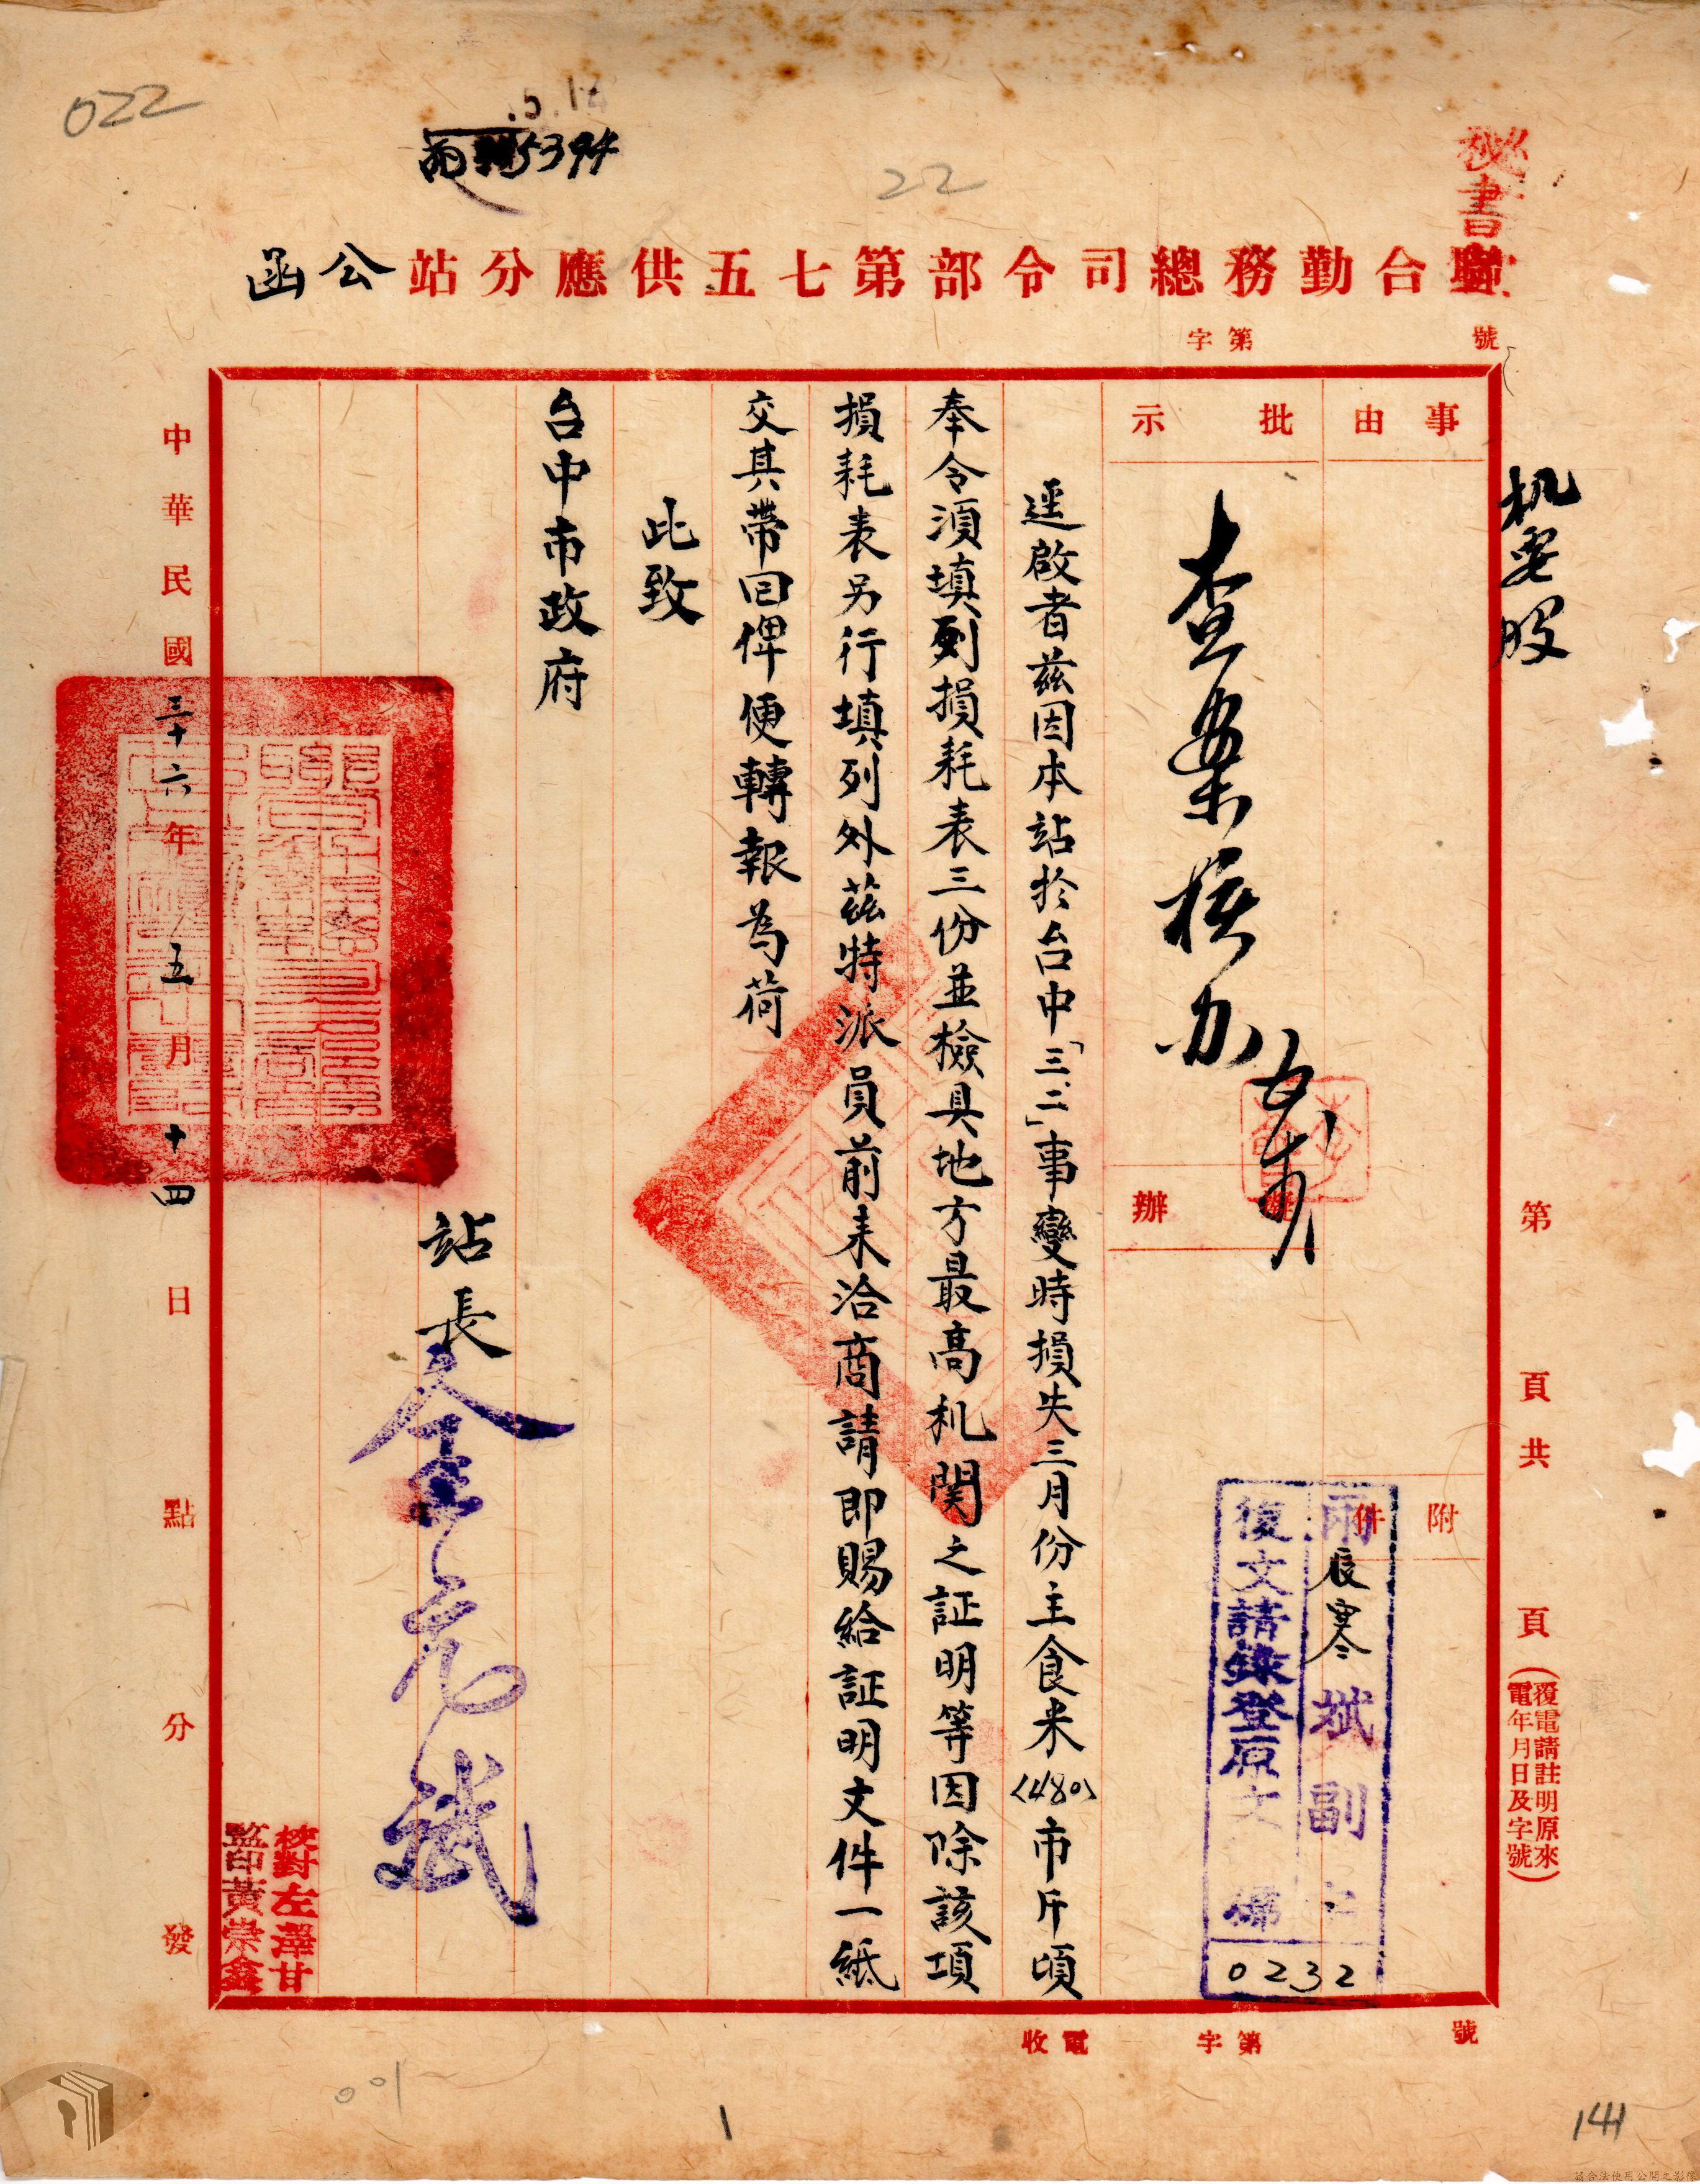 022
5.14
5394
22
秘書室
聯合勤務總司令部第七五供應分站公函
字第 號
机要股
事由
批示
擬辦
附件
查案核办
逕啟者茲因本站於台中「三.二」事變時損失三月份主食米〈480〉市斤頃
奉令須填列損耗表三份並檢具地方最高机関之証明等因除該項
損耗表另行填列外茲特派員前來洽商請即賜給証明文件一紙
交其帶回俾便轉報為荷
此致
台中市政府
站長金元斌
中華民國三十六年五月十四日 點 分發
雨辰寒斌副字
復文請錄登原文號
0232
校對左澤甘
監印黃崇鑫
第 頁共 頁(覆電請註明原來電年月日及字號)
收電 字第 號
001
1
141
請合法使用公開之影像